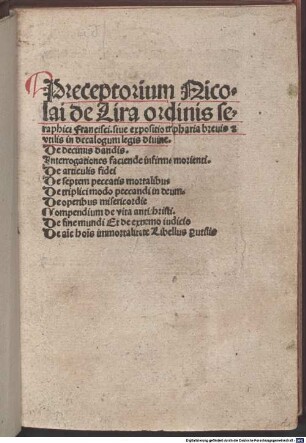 Preceptorium Nico-
lai de Lira ordinis se-
raphici Francisci. siue expositio trpharia breuis &
vtilis in decalogum legis diuine.
De decimis dandis.
Interrogationes faciende infirmo morienti.
De articulis fidei
De septem peccatis mortalibus
De triplici modo peccandi in deum.
De operibus misericordie
Compendium de vita antichristi.
De fine mundi Et de extremo iudicio
De aie hois immortalitate Libellus perutilis